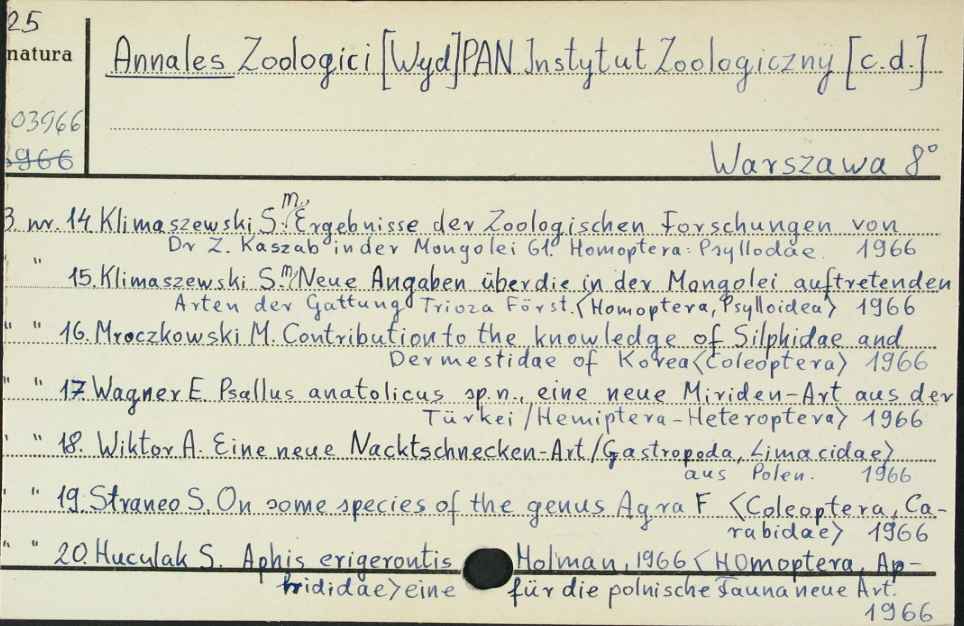 25
natura
Annales Zoologici [Wyd] PAN Instytut Zoologiczny [c.d.]
03966
3966
Warszawa 8°
3. nr. 14. Klimaszewski S.M. Ergebnisse der Zoologischen Forschungen von
Dr Z. Kaszab in der Mongolei 61. Homoptera: Psyllodae. 1966
" 15. Klimaszewski S.M. Neue Angaben über die in der Mongolei auftretenden
Arten der Gattung Trioza Först. <Homoptera, Psylloidea> 1966
" " 16. Mroczkowski M. Contribution to the knowledge of Silphidae and
Dermestidae of Korea <Coleoptera> 1966
" " 17. Wagner E. Psallus anatolicus sp.n., eine neue Miriden-Art aus der
Türkei /Hemiptera-Heteroptera> 1966
" " 18. Wiktor A. Eine neue Nacktschnecken-Art /Gastropoda, Limacidae>
aus Polen. 1966
" " 19. Straneo S. On some species of the genus Agra F <Coleoptera, Ca-
rabidae> 1966
" " 20. Huculak S. Aphis erigerontis Holman, 1966 <Homoptera, Ap-
hrididae> eine für die polnische Fauna neue Art.
1966